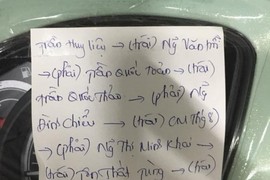 Trần Huy Liệu → (trái) Ng Văn Trỗi
→ (phải) Trần Quốc Toản → (trái)
trần Quốc Thảo → (phải) Ng
Đình Chiểu → (trái) CM Thg 8
→ (phải) Ng Thị Minh Khai →
(trái) Tôn Thất Tùng → (trái)